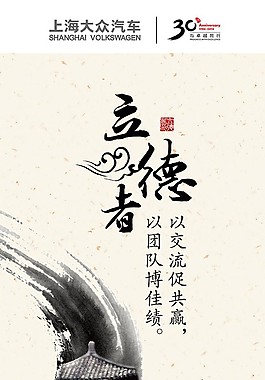 上海大众汽车
SHANGHAI VOLKSWAGEN
30 Anniversary
与卓越同行
立德者
以交流促共赢，
以团队博佳绩。